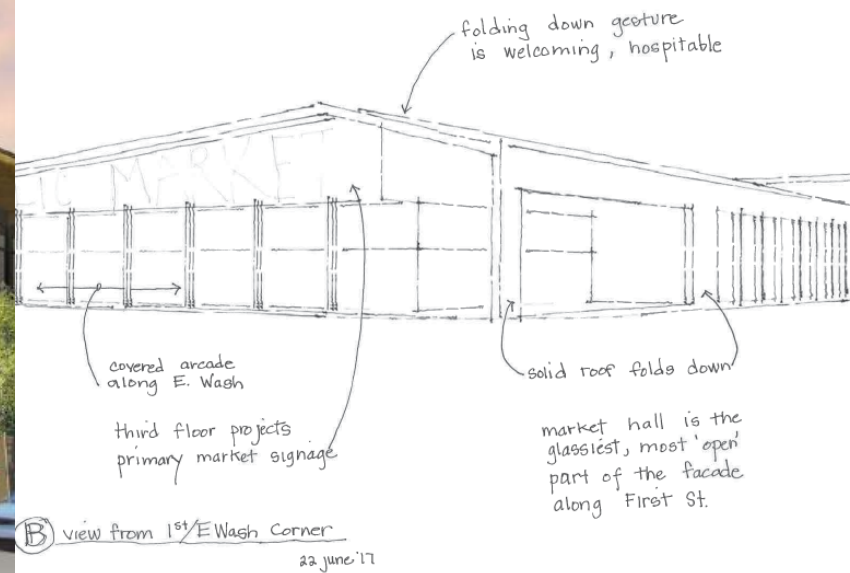 folding down gesture
is welcoming, hospitable
LIC MARKET
covered arcade
along E. Wash
solid roof folds down
third floor projects
primary market signage
market hall is the
glassiest, most 'open'
part of the facade
along First St.
B view from 1st/E Wash Corner
22 june '17